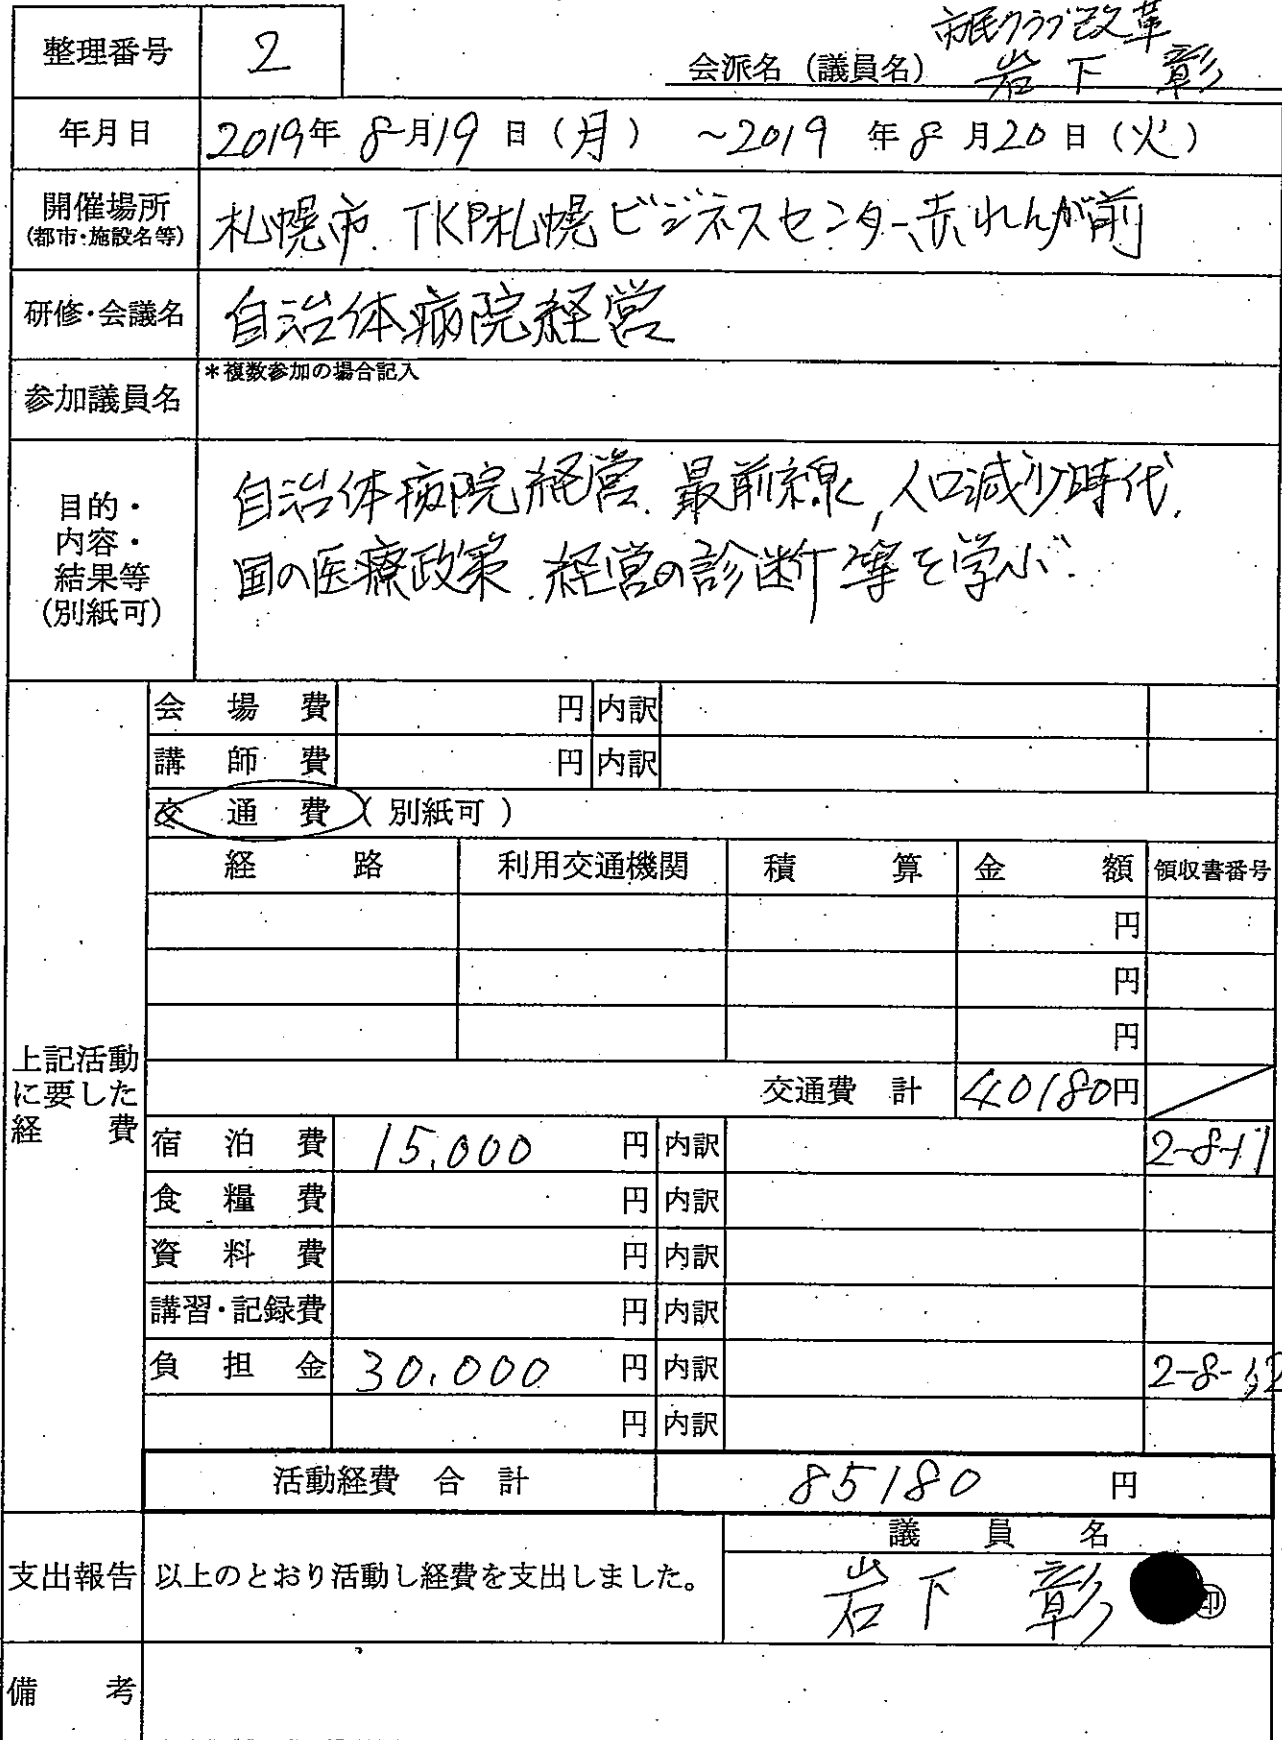 市民クラブ改革
整理番号 2 会派名（議員名） 岩下 彰
年月日 2019年 8月19日（月） ～2019年8月20日（火）
開催場所
(都市・施設名等)
札幌市. TKP札幌ビジネスセンター赤れんが前
研修・会議名 自治体病院経営
参加議員名 ＊複数参加の場合記入
目的・
内容・
結果等
(別紙可)
自治体病院経営. 最前線, 人口減少時代.
国の医療政策. 経営の診断等を学ぶ.
上記活動
に要した
経費
会場費 円 内訳
講師費 円 内訳
交通費（別紙可）
経路 利用交通機関 積算 金額 領収書番号
円
円
円
交通費 計 40180円
宿泊費 15,000 円 内訳 2-8-11
食糧費 円 内訳
資料費 円 内訳
講習・記録費 円 内訳
負担金 30,000 円 内訳 2-8-12
円 内訳
活動経費 合計 85180 円
支出報告 以上のとおり活動し経費を支出しました。
議員名
岩下 彰 印
備考